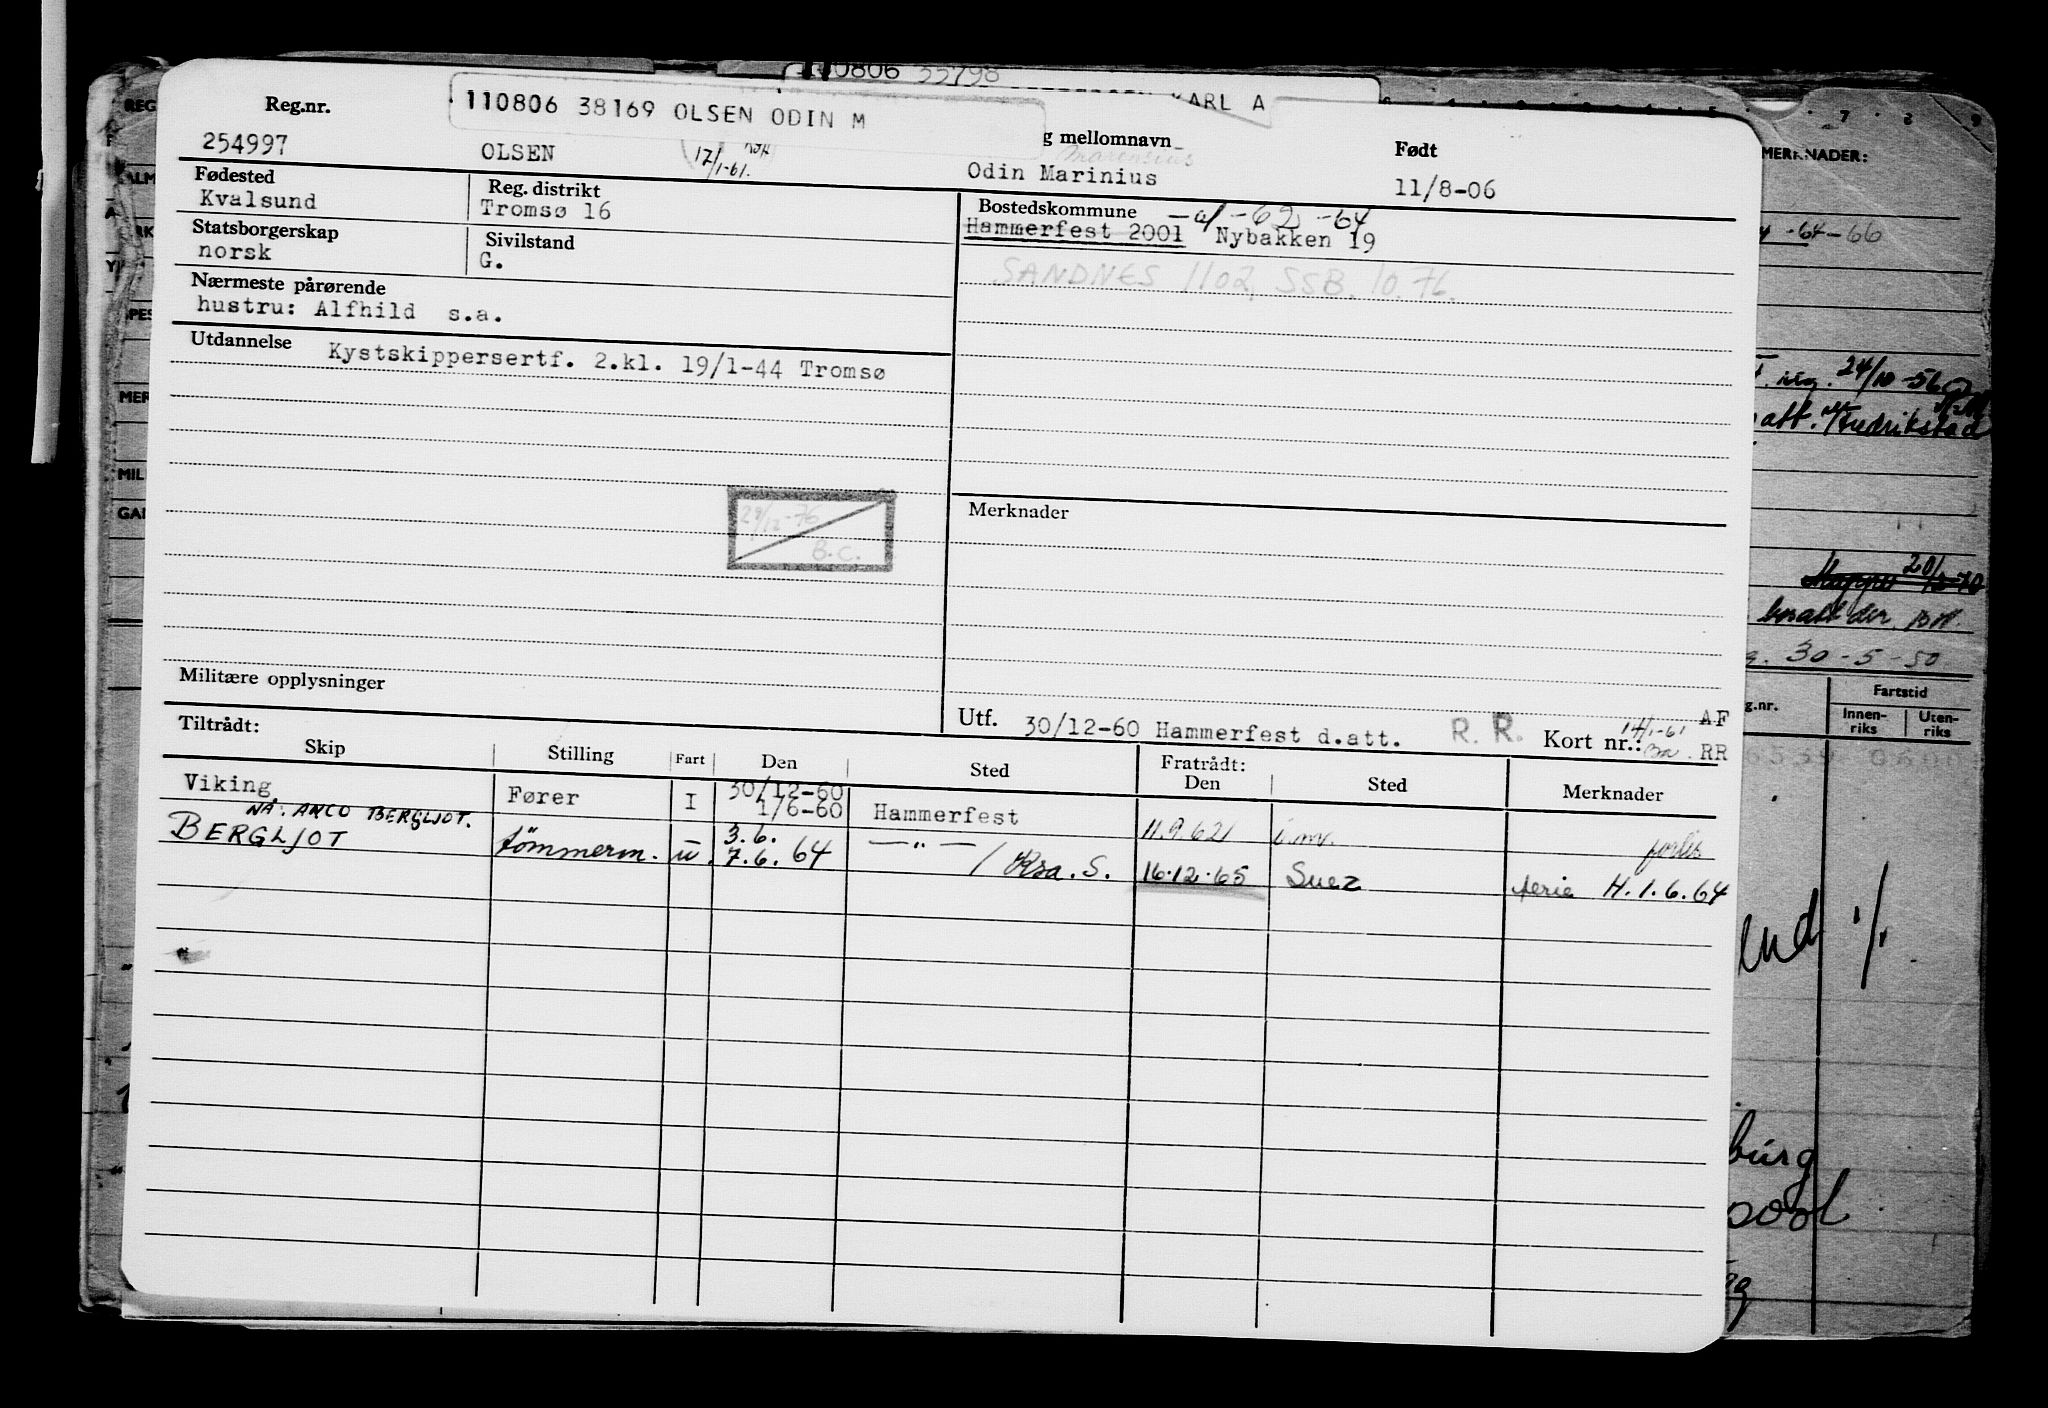 110806 35798
KARL A
110806 38169 OLSEN ODIN M
Reg.nr. g mellomnavn Født
254997 OLSEN 17/1-61. Marensius
Odin Marinius 11/8-06
Fødested Reg. distrikt Bostedskommune -61 -62 -64
Kvalsund Tromsø 16 Hammerfest 2001 Nybakken 19
Statsborgerskap Sivilstand
norsk G. SANDNES 1102, SSB. 10.76.
Nærmeste pårørende
hustru: Alfhild s.a.
Utdannelse Kystskippersertf. 2.kl. 19/1-44 Tromsø
29/12-76
B.C.
Merknader
Militære opplysninger
Utf. 30/12-60 Hammerfest d.att. R. R. Kort nr.: 14/1-61 AF
RR
Tiltrådt: Fratrådt:
Skip Stilling Fart Den Sted Den Sted Merknader
Viking Fører I 30/12-60
1/6-60 Hammerfest 11.9.62 i.mv. forlis
NÅ: ANCO BERGLJOT.
BERGLJOT tömmerm. u. 3.6.
7.6.64 —„— / Krsa. S. 16.12.65 Suez ferie H.1.6.64
REG
MER
MIL
GAR
7 8 9
MERKNADER:
-64-66
reg. 24/10-56
att. Fredrikstad
Mappe 20/12-70
besatt der BH.
30-5-50
g.nr. Fartstid
Innen- Uten-
riks riks
und %
burg
pool